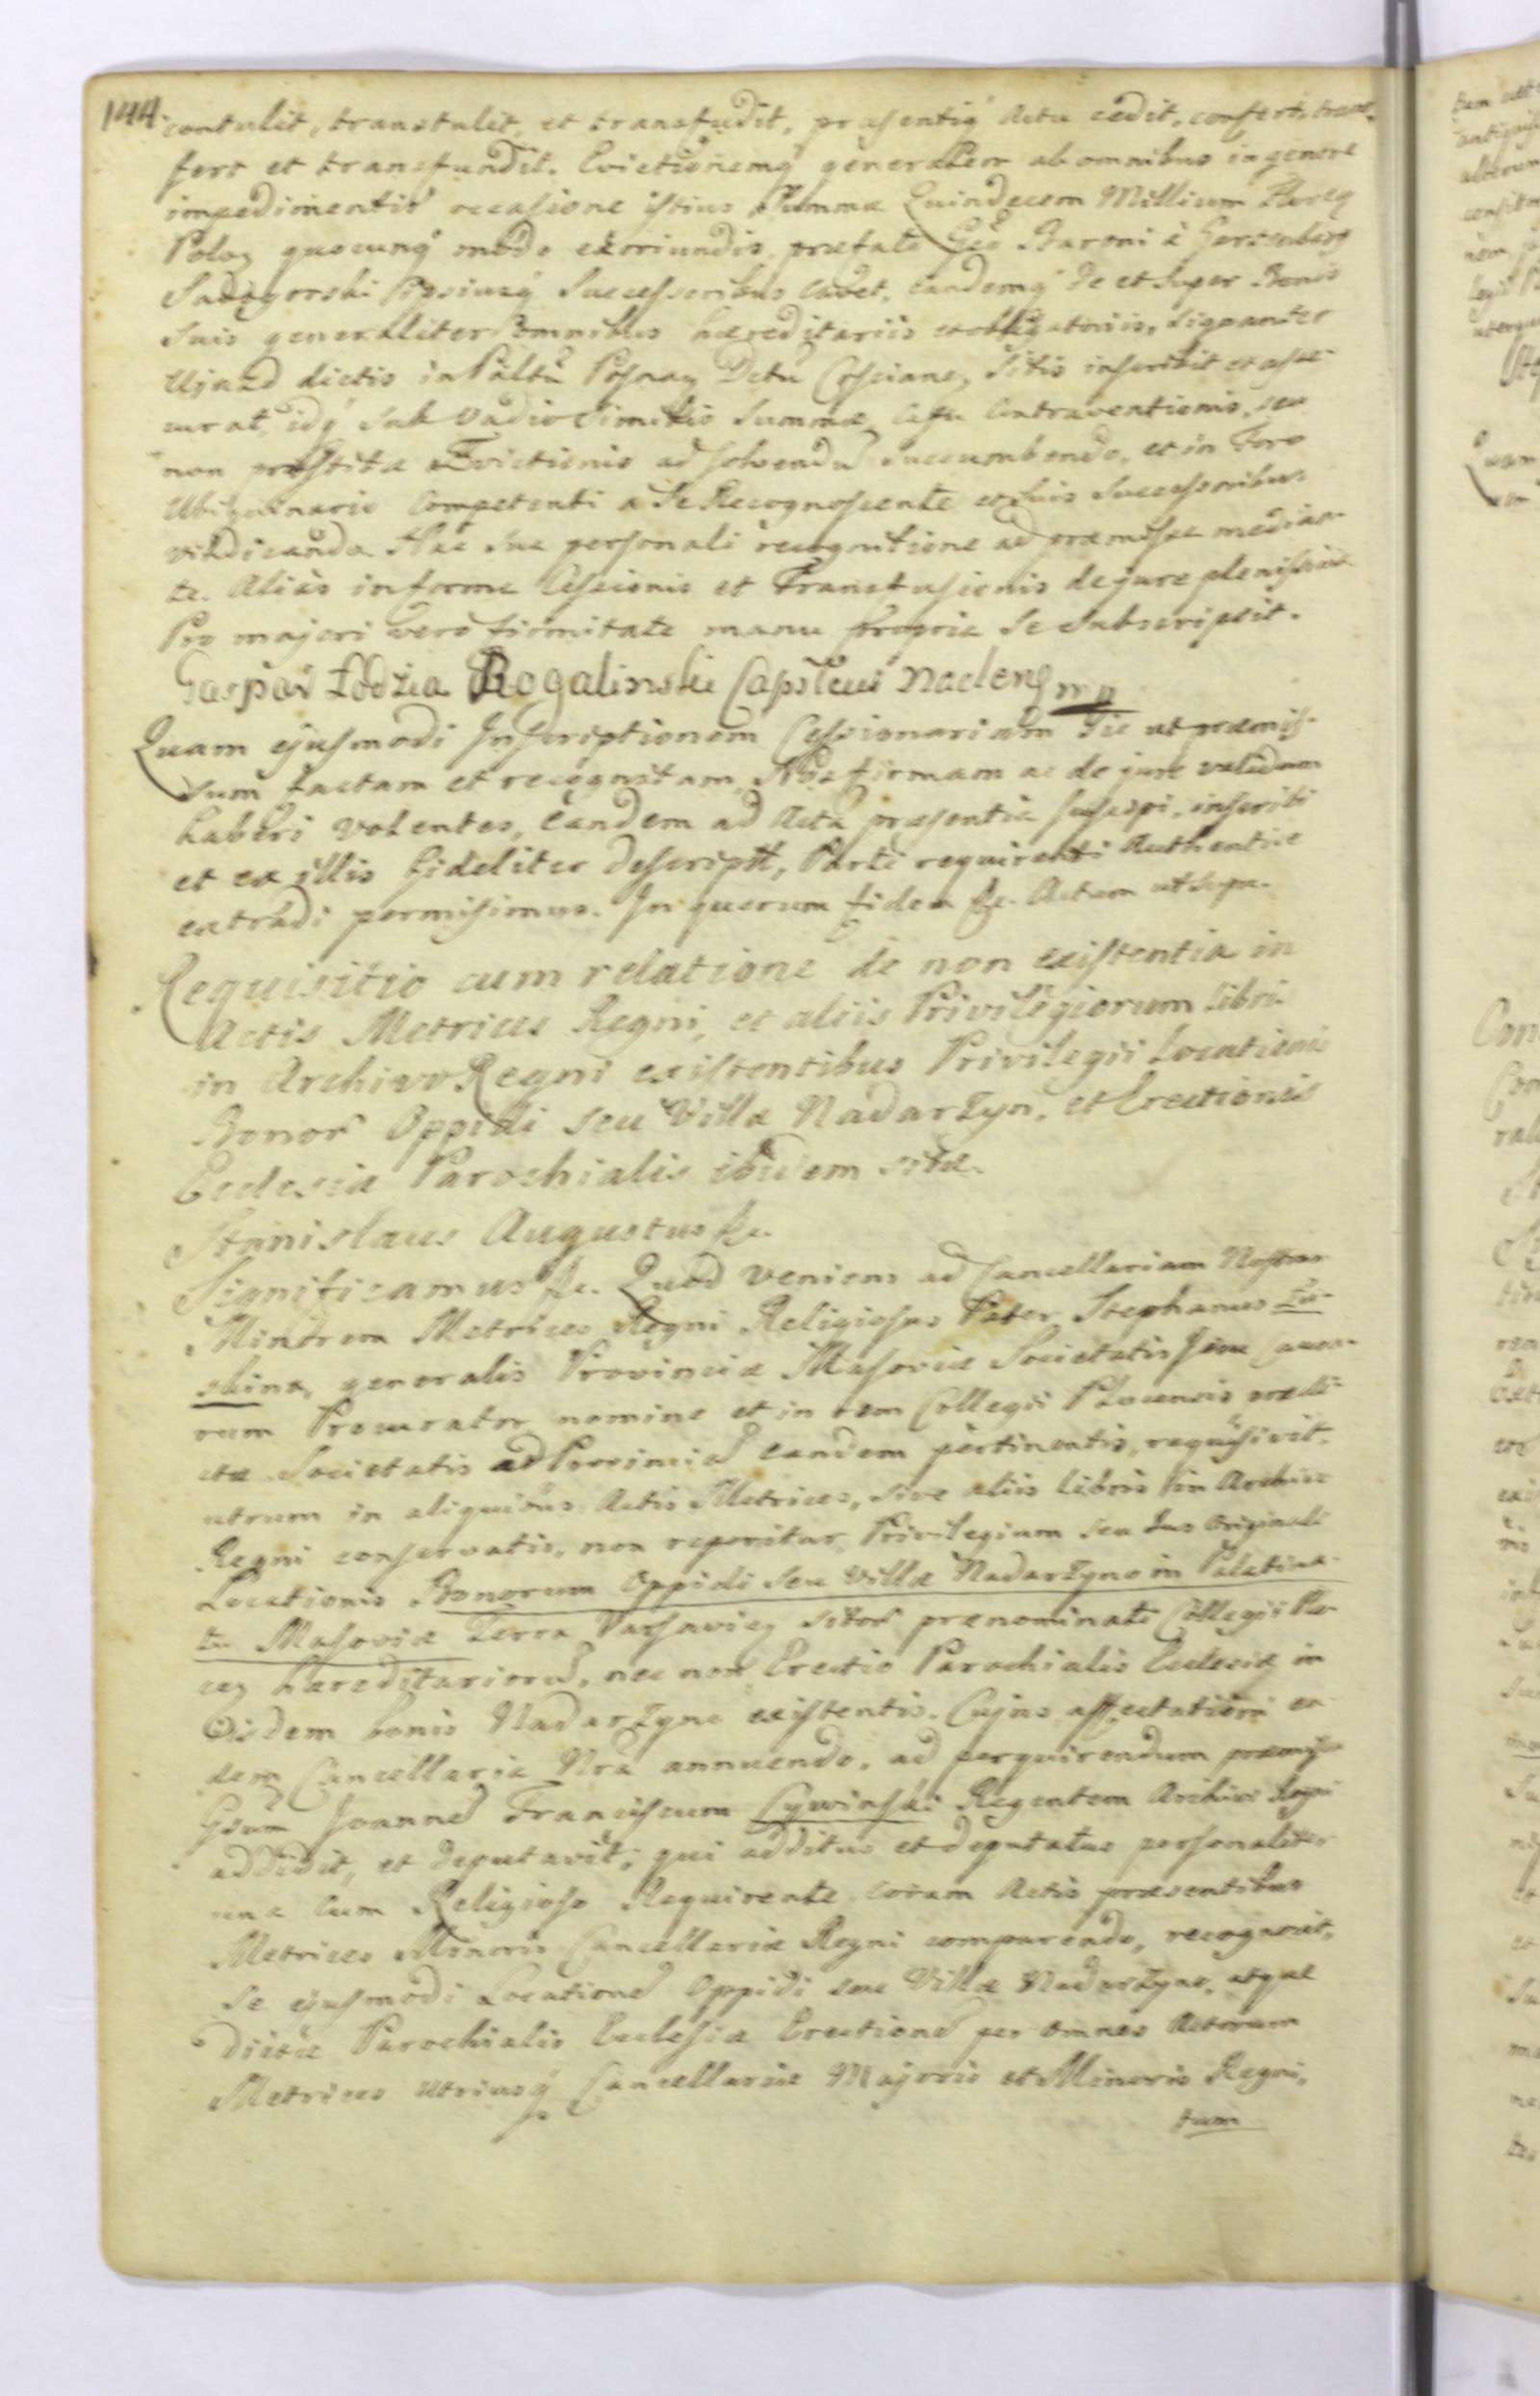 144.
contulit, transtulit, et transfudit, præsentiq' Actu cedit, confert, trans-
fert et transfundit. Evictionemq' generalem ab omnibus in genere
impedimentis occasione istius Summæ Quindecem Millium
Polon quocunq' modo exoriundis, præfato Gso Baroni à
Successoribus cavet, eandemq' de et super Bonis
suis generaliter omnibus hæreditariis et obligatoriis, signanter
Ujazd dictis in Palttu Posnan Dttu Coscianen sitis inscribit et asse-
curat, idq' sub vadio similis Summæ, casu contraventionis, seu
non præstitæ Evictionis ad solvendũ succumbendo, et in Foro
Competenti a se Recognoscente et suis Successoribus
vindicanda Hac sua personali recognitione ad præmissa median-
te. Alias in forma Cessionis et Transfusionis de jure plenissima
Pro majori vero firmitate manu propria se subscripsit.
Gaspar Łodzia Rogalinski Capiteus Naclens mp
Quam ejusmodi Inscriptionem Cessionariam sic ut præmis-
sum factam et recognitam, Nos firmam ac de jure validam
haberi volentes, eandem ad Acta præsentia suscipi, inscribi
et ex illis fideliter descriptt, Parti requirenti Authentice
extradi permisimus. In quorum fidem &c. Actum ut supra.
Requisitio cum relatione de non existentia in
Actis Metrices Regni, et aliis Privilegiorum libri-
in Archivo Regni existentibus Privilegii Locationis
Bonor' Oppidi seu Villæ Nadarzyn, et Erectionis
Ecclesiæ Parochialis ibidem sitæ.
Stanislaus Augustus &c.
Significamus &c. Quod veniens ad Cancellariam Nostram
Minorem Metrices Regni Religiosus Pater Stephanus
generalis Provinciæ Masoviæ Societatis Jesu Causa-
rum Procurator nomine et in rem Collegii Plocensis prædi-
ctæ Societatis ad Provinciã eandem pertinentis, requisivit.
utrum in aliquibus Actis Metrices, sive aliis libris in Archivo
Regni conservatis, non reperitur Privilegium seu Jus Originale
Locationis Bonorum Oppidi seu Villæ Nadarzyno in Palatina-
tu Masoviæ Terra Varsavien sitor' prænominati Collegii Plo-
cen hæreditariorũ, nec non Erectio Parochialis Ecclesiæ in
eisdem bonis Nadarzyno existentis. Cujus affectationi ea-
dem Cancellaria Nra annuendo, ad perquirendum præmissa
Gsum Joannẽ Franciscum Cywinski Regentem Archivi Regni
addidit, et deputavit; qui additus et deputatus personaliter
una cum Religioso Requirente coram Actis præsentibus
Metrices Minoris Cancellariæ Regni comparendo, recognovit,
se ejusmodi Locationẽ Oppidi seu Villæ Nadarzyno, atque
dictæ Parochialis Ecclesiæ Erectionẽ per omnes Actorum
Metrices utriusq' Cancellariæ Majoris et Minoris Regni,
tum